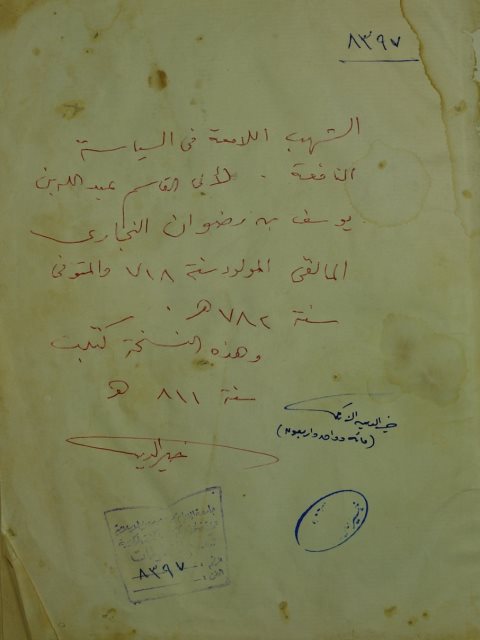 ٨٣٩٧
الشهب اللامعة في السياسة
النافعة . لأبي القاسم عبد الله بن
يوسف بن رضوان النجاري
المالقي المولود سنة ٧١٨ والمتوفى
سنة ٧٨٢ هـ .
وهذه النسخة كتبت
سنة ٨١١ هـ
خير الدين الزركلي
(مائة وواحد واربعون)
خير الدين
٨٣٩٧